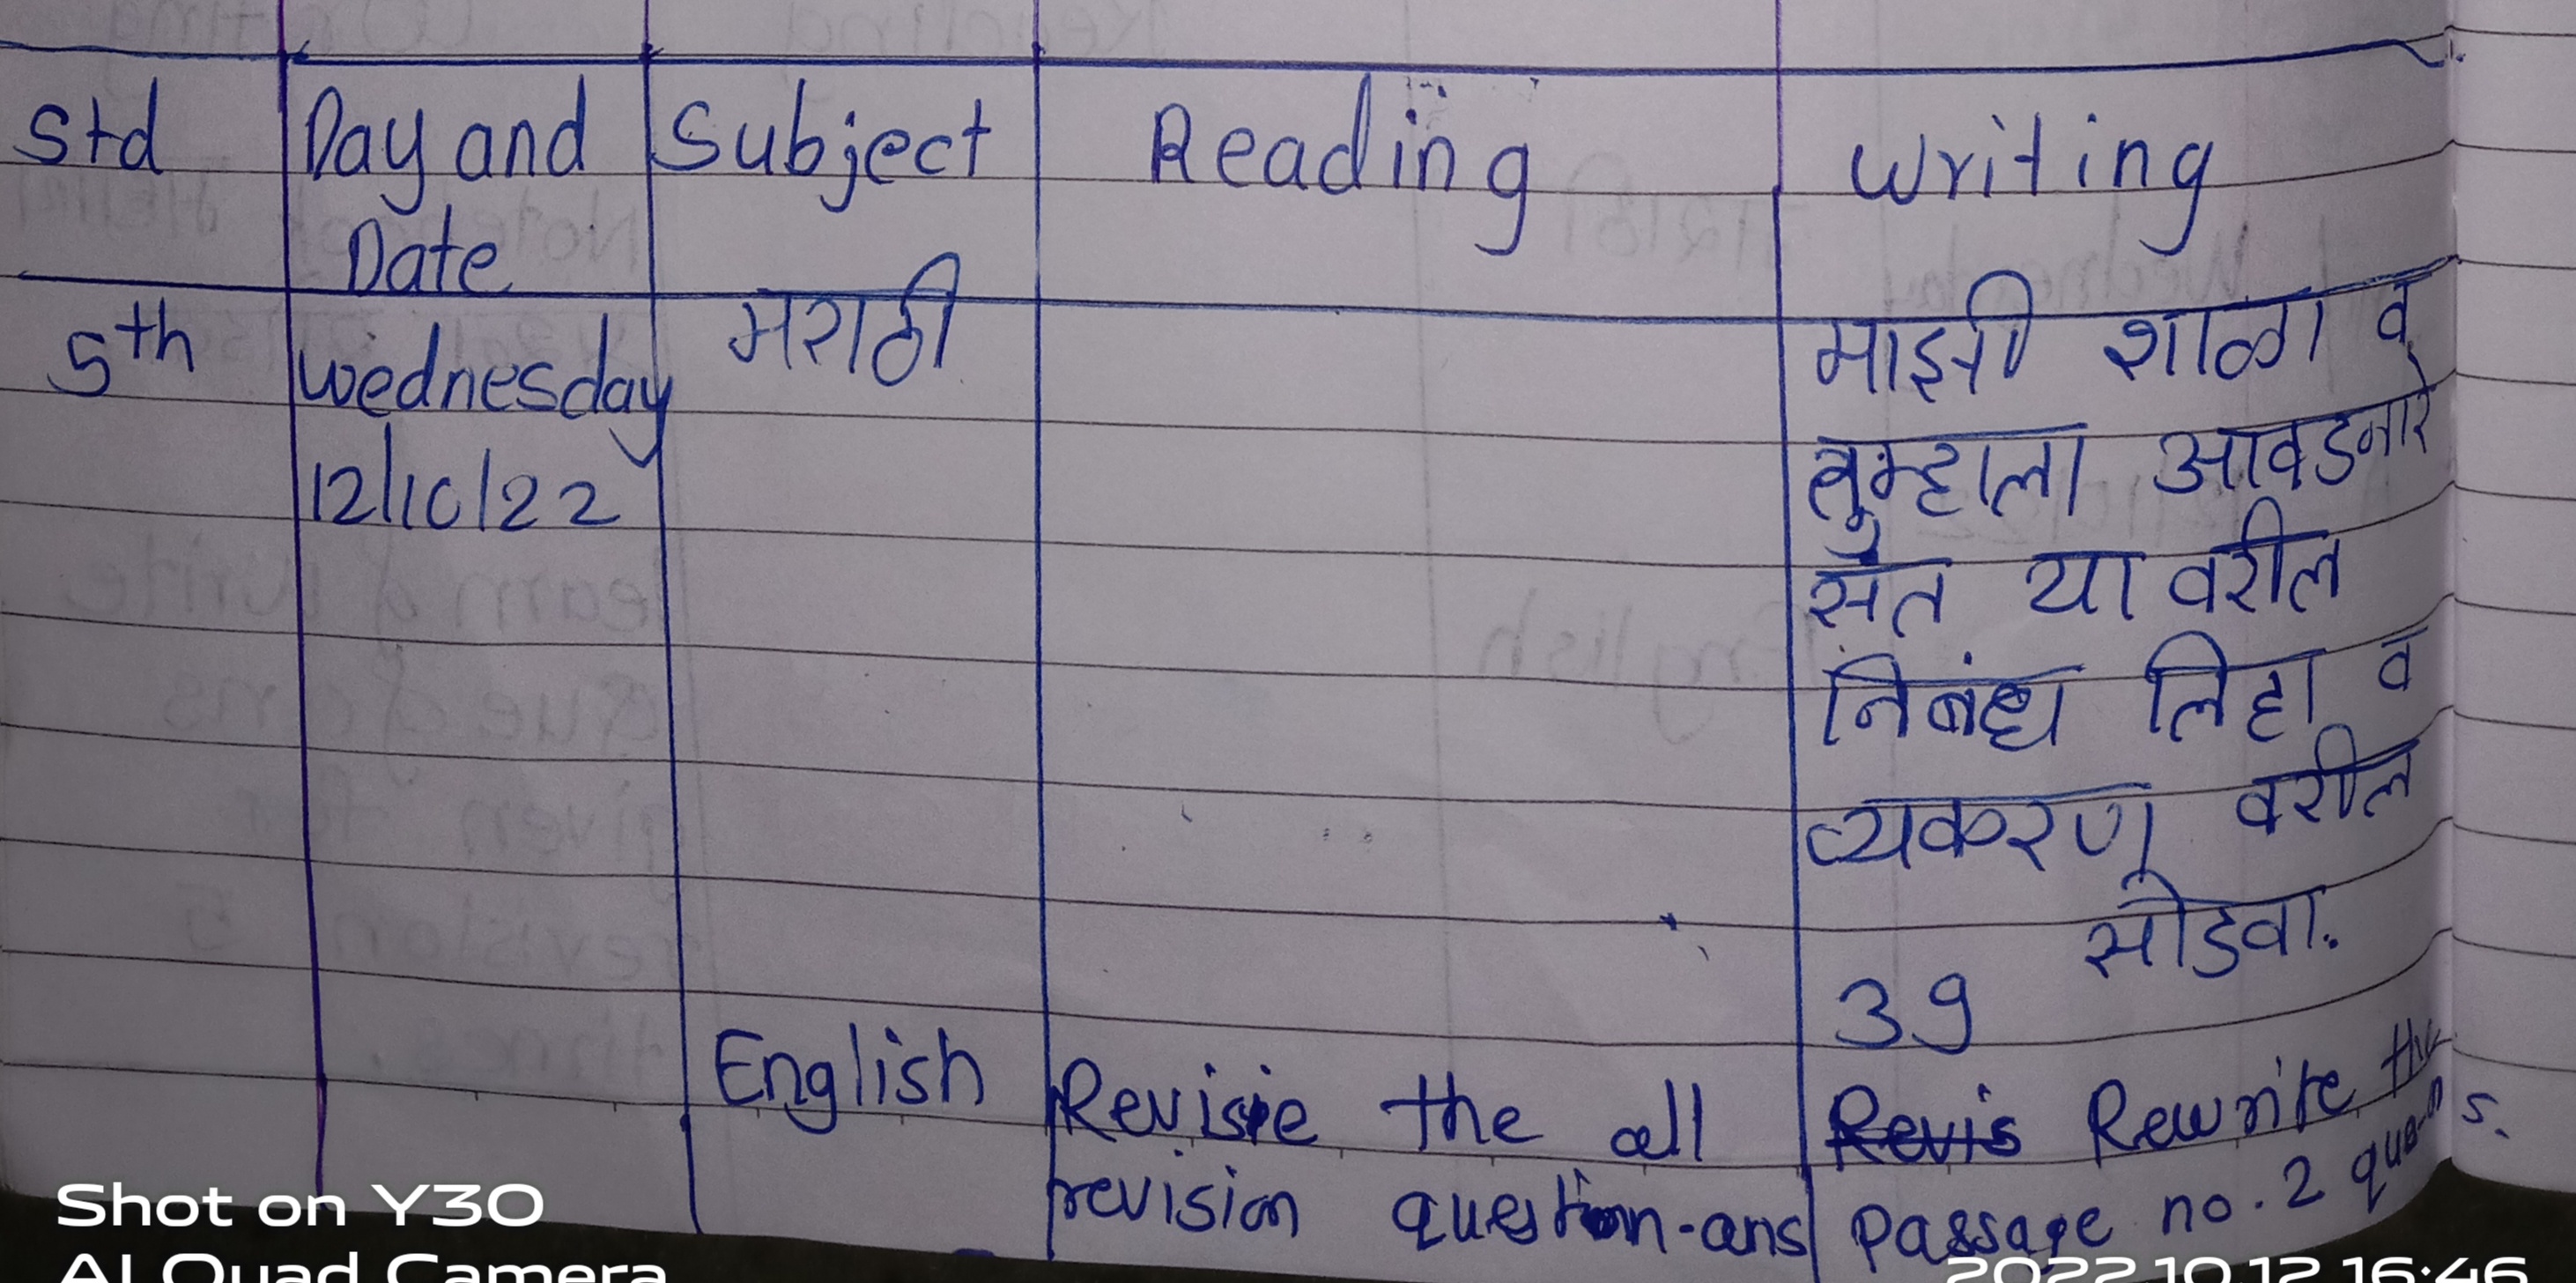 Std Day and Subject Reading Writing
Date
5th Wednesday मराठी माझी शाळा व
12/10/22 तुम्हाला आवडनारे
संत या वरील
निबंध लिहा व
व्यकरण वरील
सोडवा.
39
English Revisie the all Revis Rewrite the
revision question-ans passage no. 2
Shot on Y30
AI Quad Camera 2022.10.12 16:46